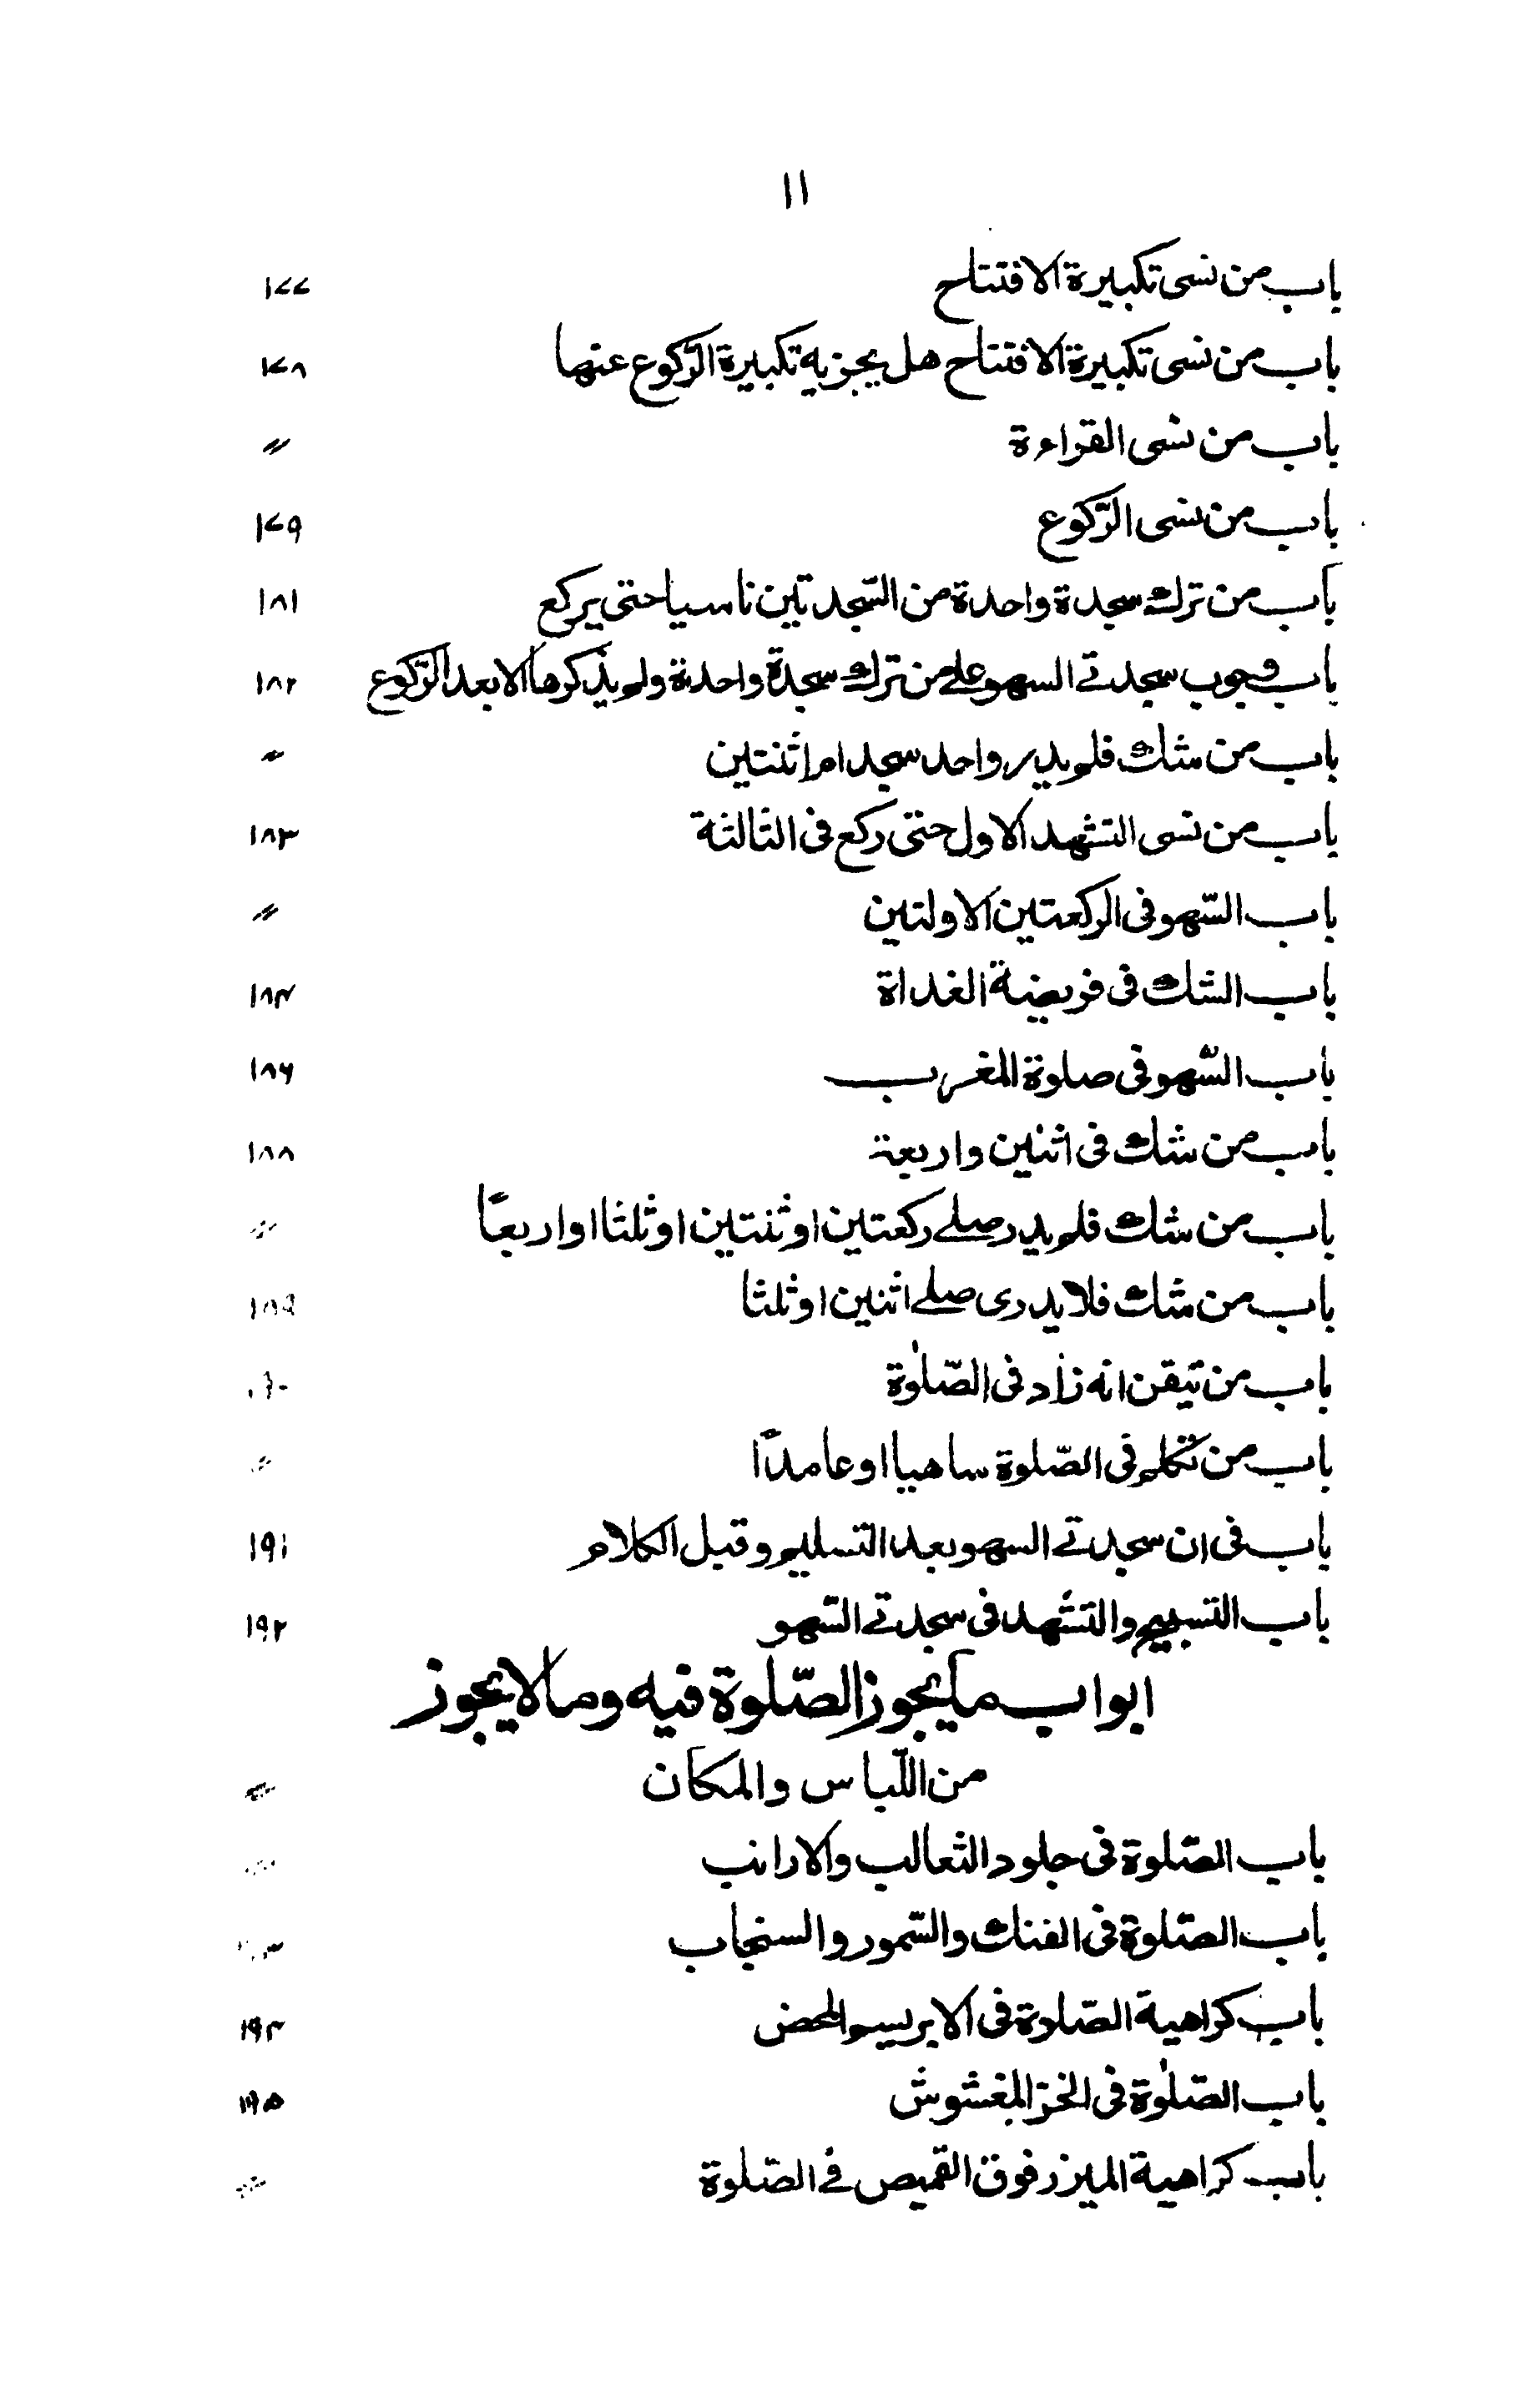 ١١
باب من نسى تكبيرة الافتتاح ١٧٧
باب من نسى تكبيرة الافتتاح هل يجزيه تكبيرة الرّكوع عنها ١٧٨
باب من نسى القراءة 〃
باب من نسى الرّكوع ١٧٩
باب من ترك سجدة واحدة من السّجدتين ناسيا حتى يركع ١٨١
باب وجوب سجدتے السهو علے من ترك سجدة واحدة ولم يذكرها الا بعد الرّكوع ١٨٢
باب من شك فلم يدر واحد سجد ام اثنتين 〃
باب من نسى التشهد الاول حتى ركع فى الثالثة ١٨٣
باب السّهو فى الركعتين الاولتين 〃
باب الشك فى فريضة الغداة ١٨٤
باب السّهو فى صلوة المغرب ١٨٦
باب من شك فى اثنين واربعة ١٨٨
باب من شك فلم يدر صلے ركعتين او ثنتين او ثلثا او اربعًا 〃
باب من شك فلا يدرى صلے اثنين او ثلثا ١٨٩
باب من تيقن انه زاد فى الصّلوٰة
باب من تكلم فى الصّلوة ساهيا او عامدًا 〃
باب فى ان سجدتے السهو بعد التسليم وقبل الكلام ١٩١
باب التسبيح والتشهد فى سجدتے السّهو ١٩٢
ابواب ما يجوز الصّلوة فيه وما لا يجوز
من اللّباس والمكان 〃
باب الصّلوة فى جلود الثعالب والارانب 〃
باب الصّلوة فى الفنك والسّمور والسنجاب
باب كراهية الصّلوة فى الابريسم المحض ١٩٤
باب الصّلوٰة فى الخز المغشوش ١٩٥
باب كراهية الميزر فوق القميص فے الصّلوة 〃